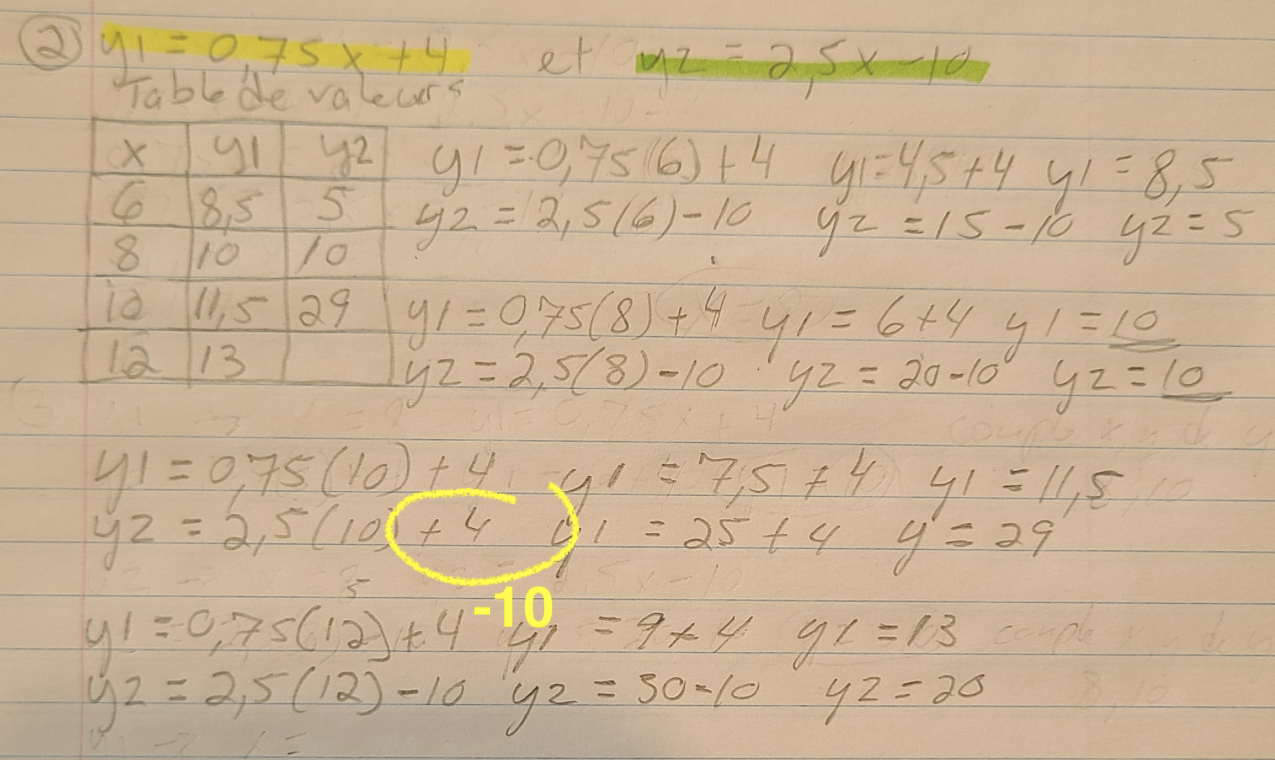 ② y1 = 0,75x + 4 et y2 = 2,5x - 10
Table de valeurs
x y1 y2
6 8,5 5
8 10 10
10 11,5 29
12 13
y1 = 0,75(6) + 4 y1 = 4,5 + 4 y1 = 8,5
y2 = 2,5(6) - 10 y2 = 15 - 10 y2 = 5
y1 = 0,75(8) + 4 y1 = 6 + 4 y1 = 10
y2 = 2,5(8) - 10 y2 = 20 - 10 y2 = 10
y1 = 0,75(10) + 4 y1 = 7,5 + 4 y1 = 11,5
y2 = 2,5(10) + 4 y1 = 25 + 4 y = 29
-10
y1 = 0,75(12) + 4 y1 = 9 + 4 y1 = 13
y2 = 2,5(12) - 10 y2 = 30 - 10 y2 = 20